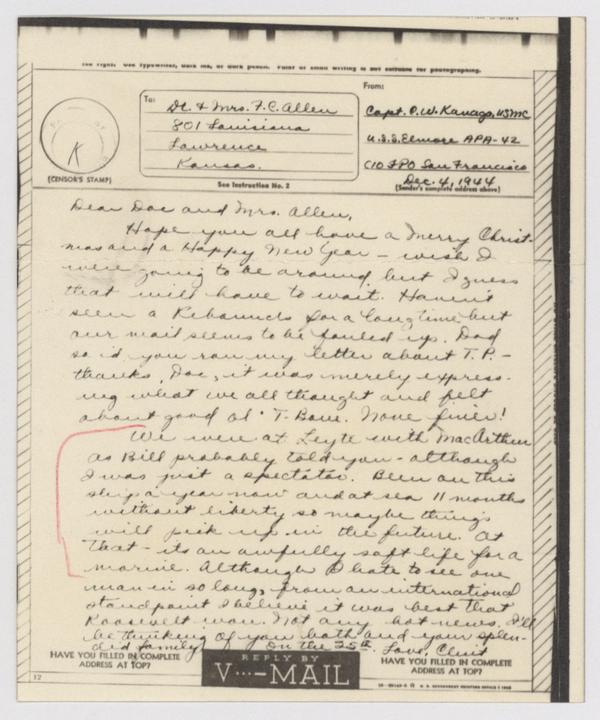 See right. Use typewriter, dark ink, or dark pencil. Faint or small writing is not suitable for photographing.
To:
Dr. & Mrs. F. C. Allen
801 Louisiana
Lawrence
Kansas.
From:
Capt. P. W. Kanago, USMC
U.S.S. Elmore APA-42
C/O FPO San Francisco
Dec. 4, 1944
(Sender's complete address above)
K
(CENSOR'S STAMP)
See Instruction No. 2
Dear Doc and Mrs. Allen,
Hope you all have a Merry Christ-
mas and a Happy New Year - wish I
were going to be around but I guess
that will have to wait. Haven't
seen a Rebounds for a long time but
our mail seems to be fouled up. Dad
said you ran my letter about T.P. -
thanks, Doc, it was merely express-
ing what we all thought and felt
about good ol' T-Bone. None finer!
We were at Leyte with MacArthur
as Bill probably told you - although
I was just a spectator. Been on this
ship a year now and at sea 11 months
without liberty so maybe things
will pick up in the future. At
that - its an awfully soft life for a
marine. Although I hate to see one
man in so long, from an international
standpoint I believe it was best that
Roosevelt won. Not any hot news. I'll
be thinking of you both and your splen-
did family on the 25th. Love, Clint
HAVE YOU FILLED IN COMPLETE
ADDRESS AT TOP?
REPLY BY
V···—MAIL
HAVE YOU FILLED IN COMPLETE
ADDRESS AT TOP?
12
U. S. GOVERNMENT PRINTING OFFICE